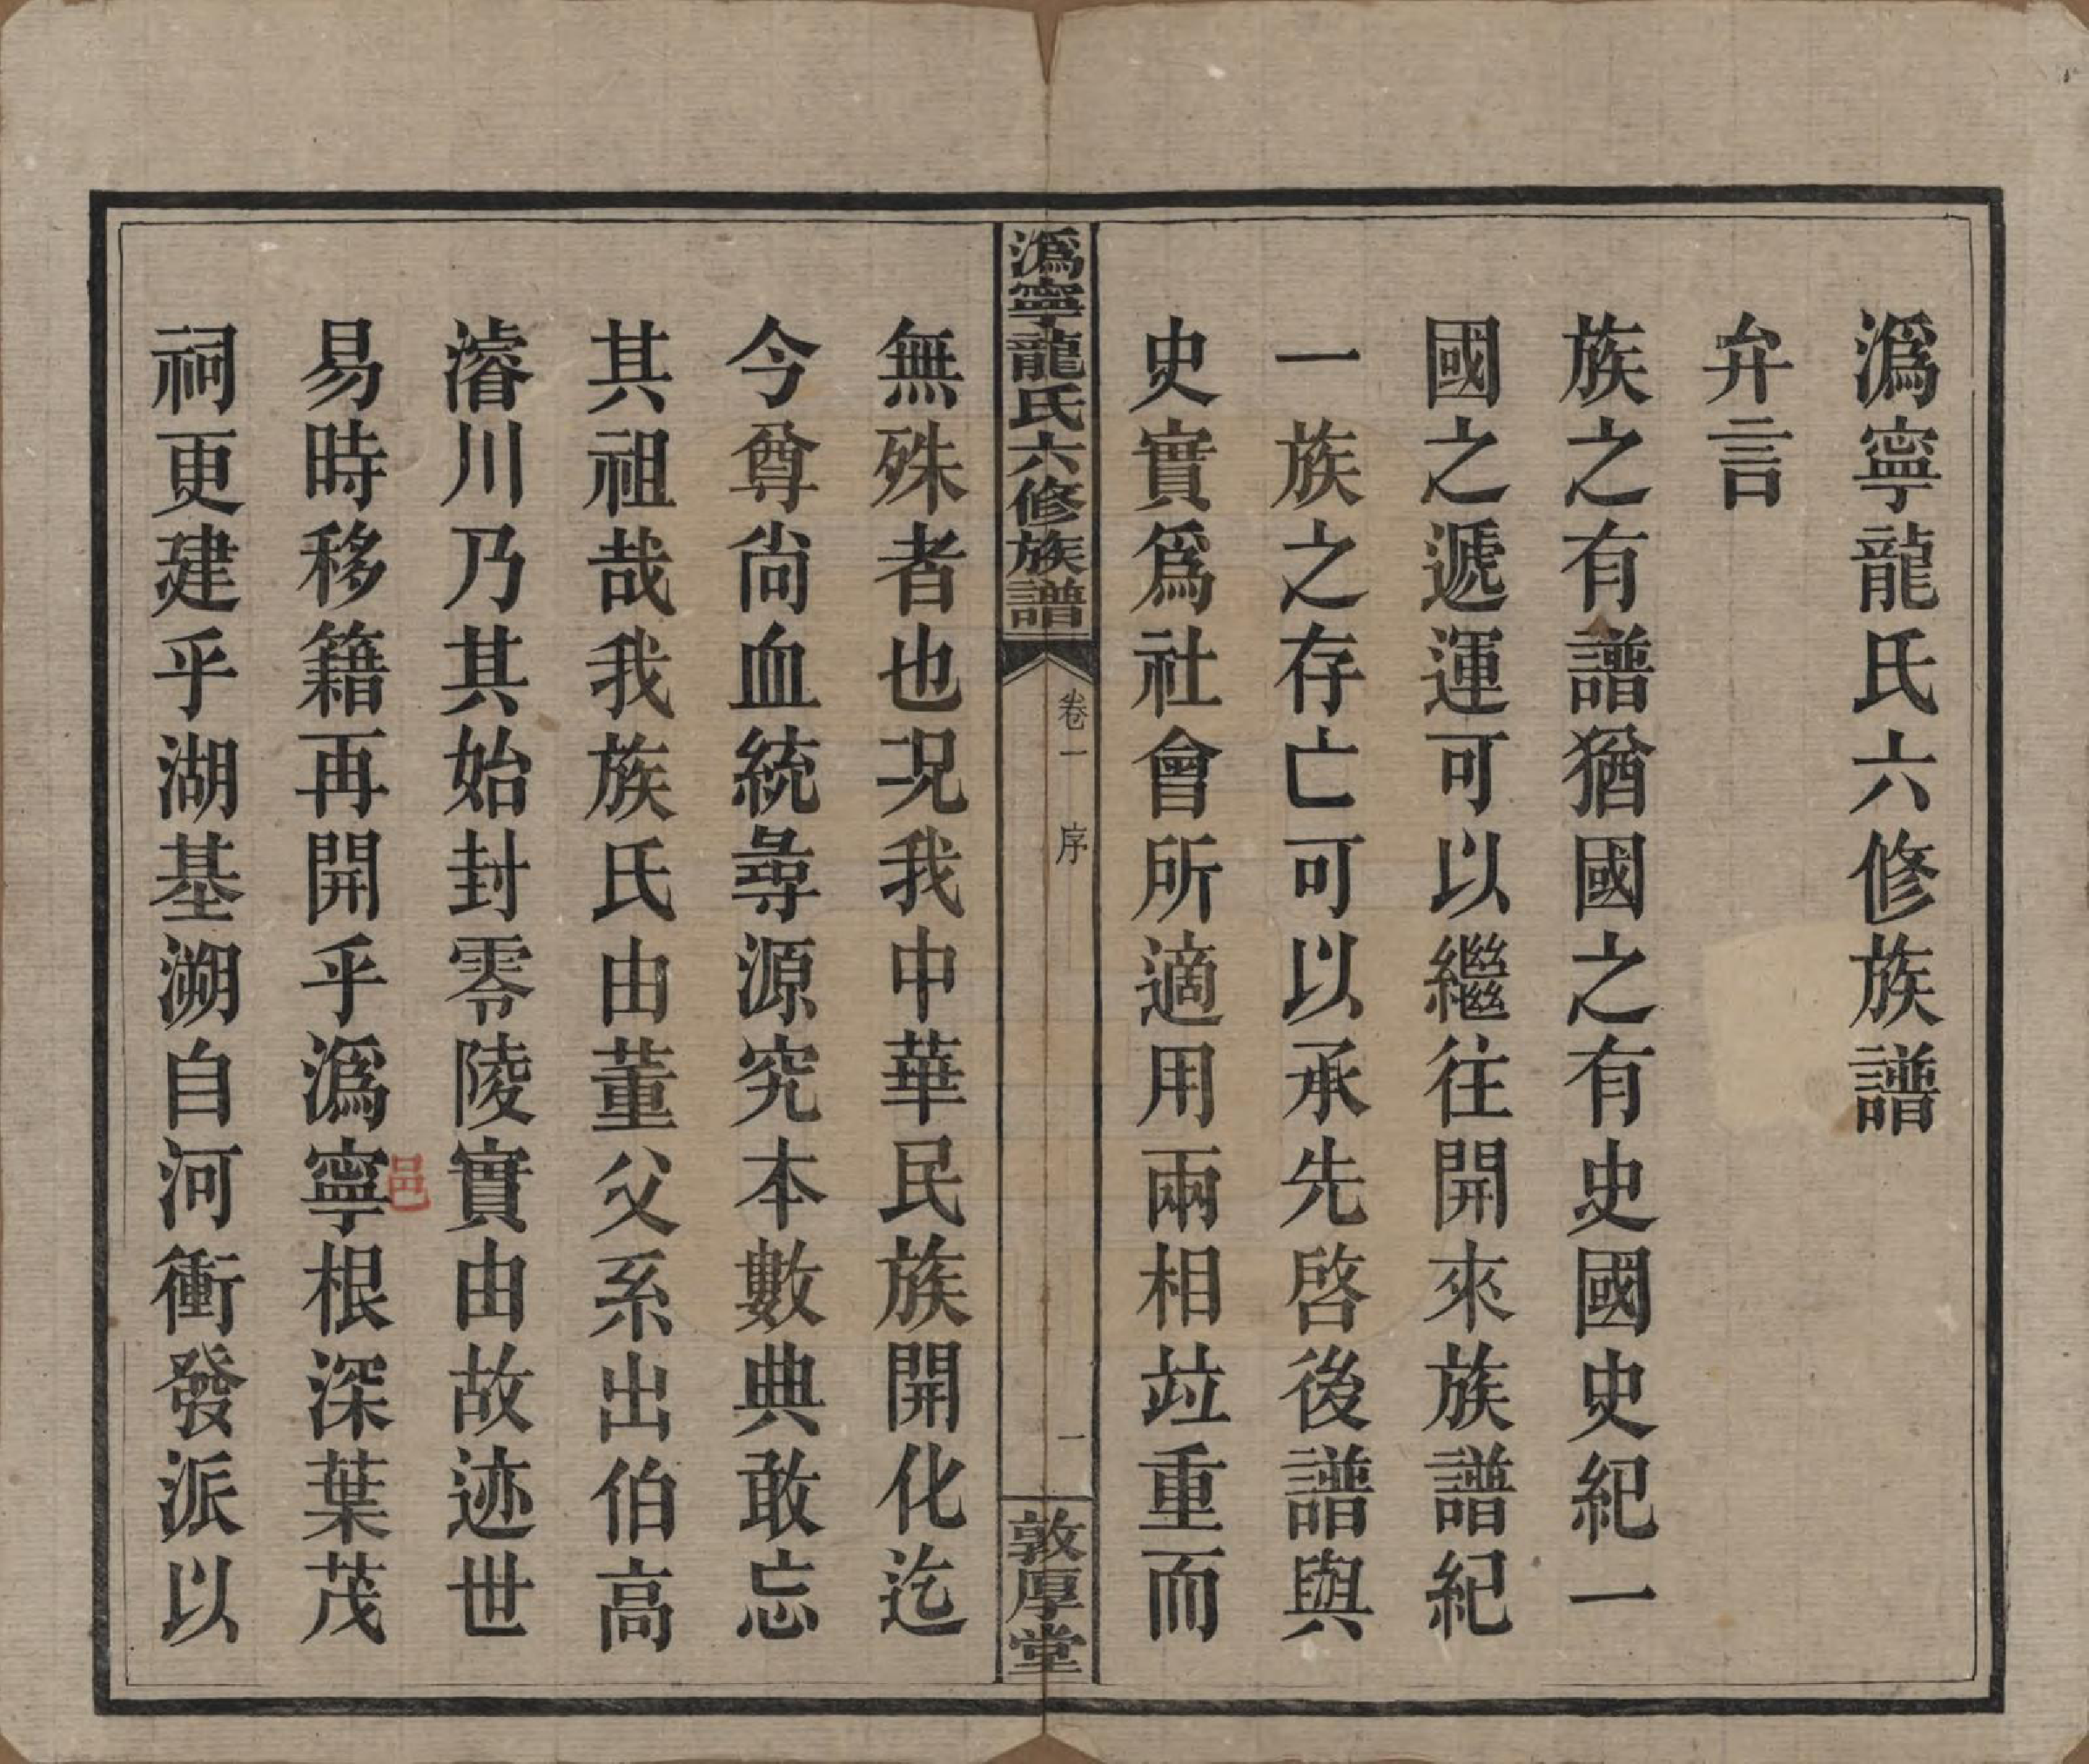 溈寧龍氏六修族譜
弁言
族之有譜猶國之有史國史紀一
國之遞運可以繼往開來族譜紀
一族之存亡可以承先啓後譜與
史實爲社會所適用兩相竝重而
溈寧龍氏六修族譜
卷一
序
一
敦厚堂
無殊者也况我中華民族開化迄
今尊尙血統尋源究本數典敢忘
其祖哉我族氏由董父系出伯高
濬川乃其始封零陵實由故迹世
易時移籍再開乎溈寧根深葉茂
邑
祠更建乎湖基溯自河衝發派以